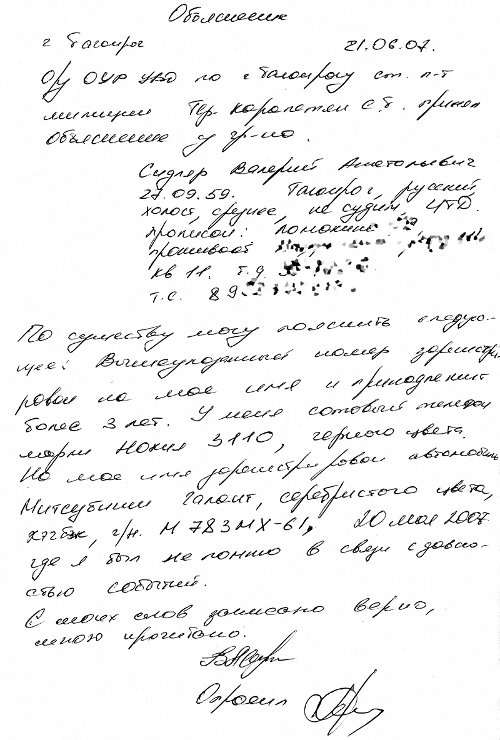 Объяснение
г. Таганрог 21.06.07.
О/у ОУР УВД по г. Таганрогу ст. л-т
милиции Тер-Карапетян С.Б. принял
объяснение у гр-на.
Сидлер Валерий Анатольевич
27.09.59. Таганрог, русский
холост, среднее, не судим,
прописан:
проживает
кв 11. т.д.
т.с. 89
По существу могу пояснить следую-
щее: Вышеуказанный номер зарегистри
рован на мое имя и принадлежит
более 3 лет. У меня сотовый телефон
марки Нокия 3110, черного цвета.
На мое имя зарегистрирован автомобиль
Митсубиши Галант, серебристого цвета,
хэтчбэк, г/н. М 783 МХ-61, 20 мая 2007
где я был не помню в связи с давно-
стью событий.
С моих слов записано верно,
мною прочитано.
Опросил